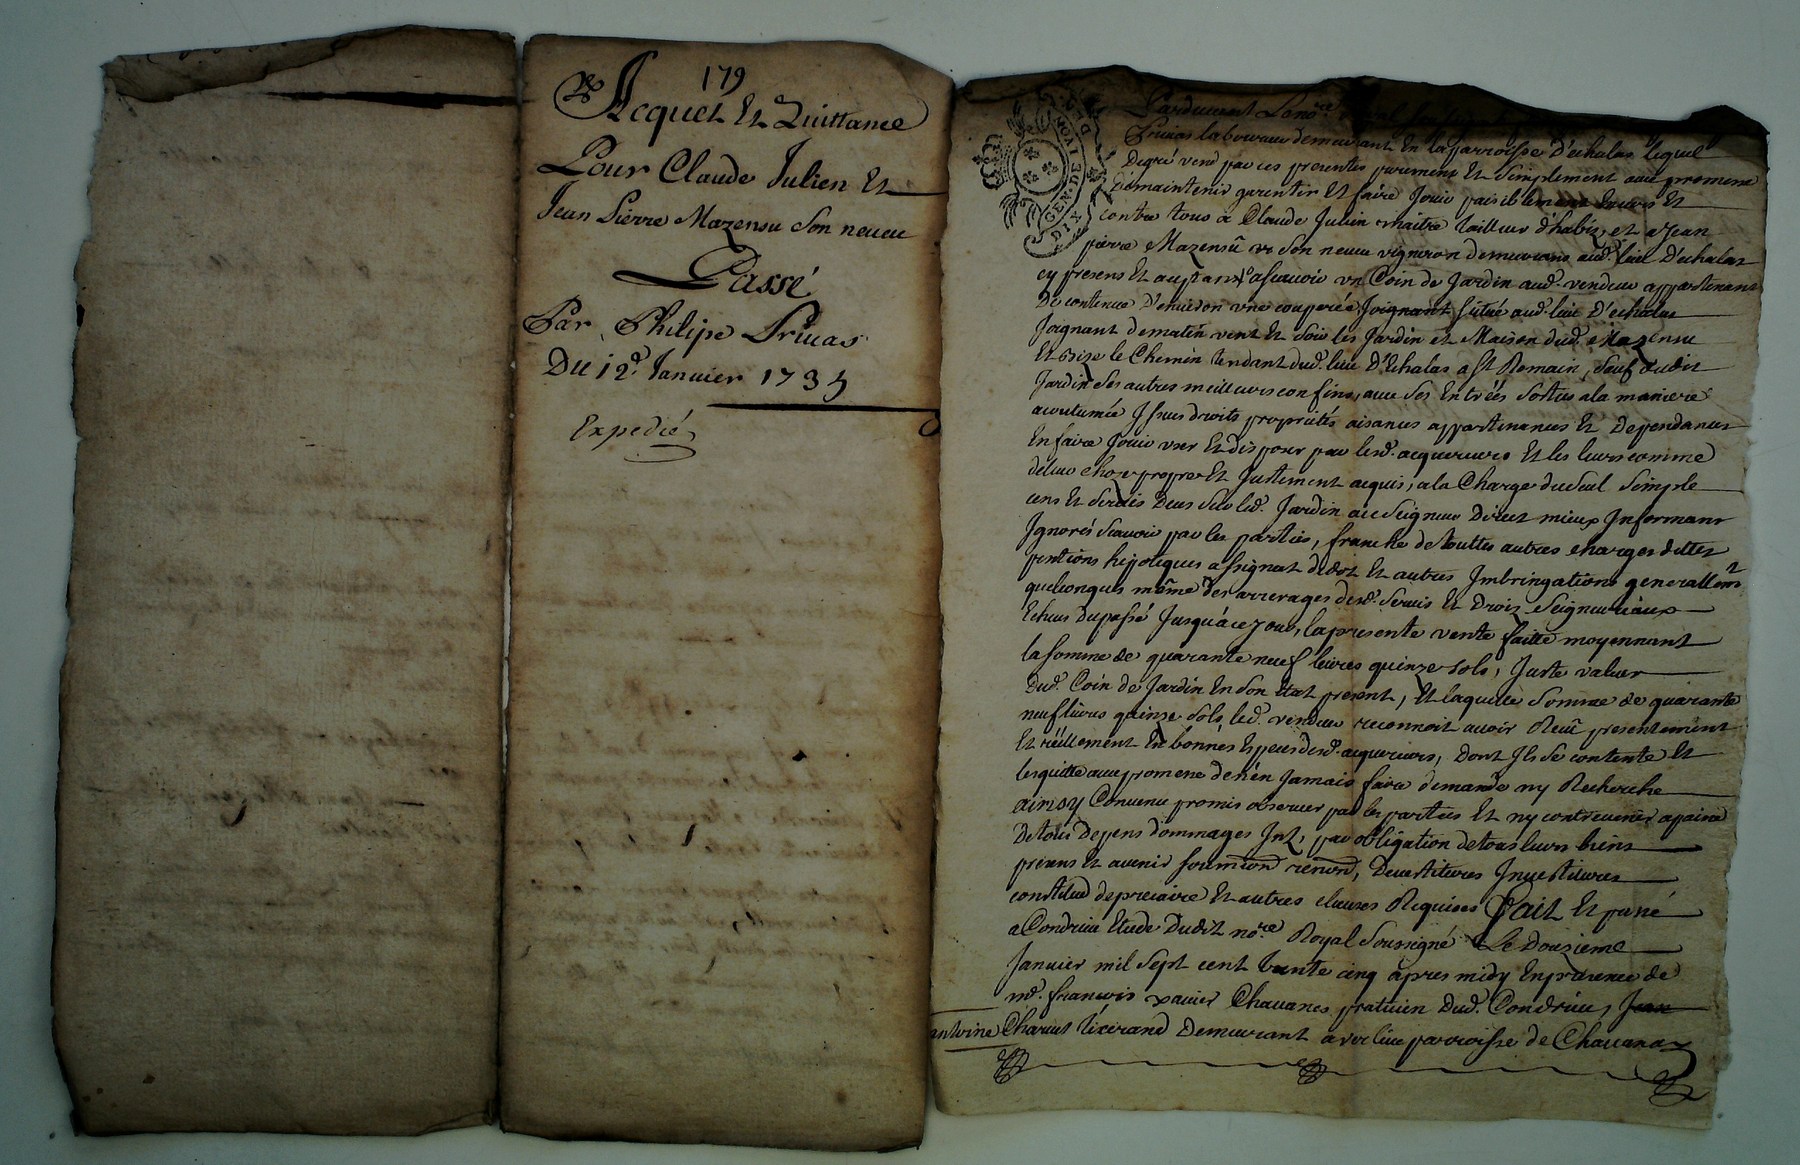 179
Acquet Et Quittance
Pour Claude Julien Et
Jean Pierre Mazensu Son neueu
Passé
Par Philipe Priuas
Du 12e. Januier 1735
Expedié
GEN. DE LYON
DIX
Pardeuant Le no.re
Priuas laboureur demeurant En la parroisse D'echalas lequel
Degré vend par ces presentes purement Et Simplement auec promesse
Demaintenir garentir Et faire Jouir paisiblement Enuers Et
contre tous a Claude Julien maitre tailleur d'habits, et a Jean
pierre Mazensu son neueu vigneron demeurans aud. lieu D'echalas
cy presens Et aceptans ascauoir vn Coin de Jardin aud. vendeur appartenant
De contenue D'enuiron vne couperée Joignant Situé aud. lieu D'echalas
Joignant dematin vent Et Soir les Jardin et Maison dud. Mazensu
Et bize le Chemin tendant dud. lieu D'Echalas a St Romain, Sauf dudit
Jardin Ses autres meilleurs confins, auec Ses Entrées Sorties ala maniere
acoutumée Issues droits proprietés aisances appartenances Et Dependances
En faire Jouir vser Et disposer par lesd. acquereurs Et les leurs comme
deleur chose propre Et Justement acquis, ala Charge du Seul Simple
cens Et Seruis Deus Sur led. Jardin au Seigneur Direct mieux Informans
Ignorés Scauoir par les parties, franche de touttes autres charges dettes
pentions hipoteques assignat dedot Et autres Imbringations generallemt
quelconques même des arrerages desd. Seruis Et Droits Seigneuriaux
Echeus Dupassé Jusqu'à ce Jour, la presente vente faitte moyennant
la Somme de quarante neuf liures quinze Sols, Juste valeur
Dud. Coin de Jardin En Son Etat present, Et laquelle Somme de quarante
neuf liures quinze Sols, led. vendeur reconnoit auoir Receu presentement
Et réellement En bonnes Especes desd. acquereurs, Dont Il Se contente Et
les quitte auec promesse de n'en Jamais faire demande ny Recherche
ainsy Conuenu promis obseruer par les parties Et ny contreuenir apaine
De tous Depens dommages Int. par obligation de tous leurs biens
presens Et auenir Soumion renon, Deuestitures Inuestitures
constitud de precaire Et autres clauses Requises Fait Et passé
a Condrieu Etude Dudit no.re Royal Soussigné Le Douzieme
Januier mil Sept cent trente cinq apres midy En presence de
me. francois xauier Chauanes praticien Dud. Condrieu, Jean
antoine Charuet tixerand Demeurant a verlieu parroisse de Chauanay